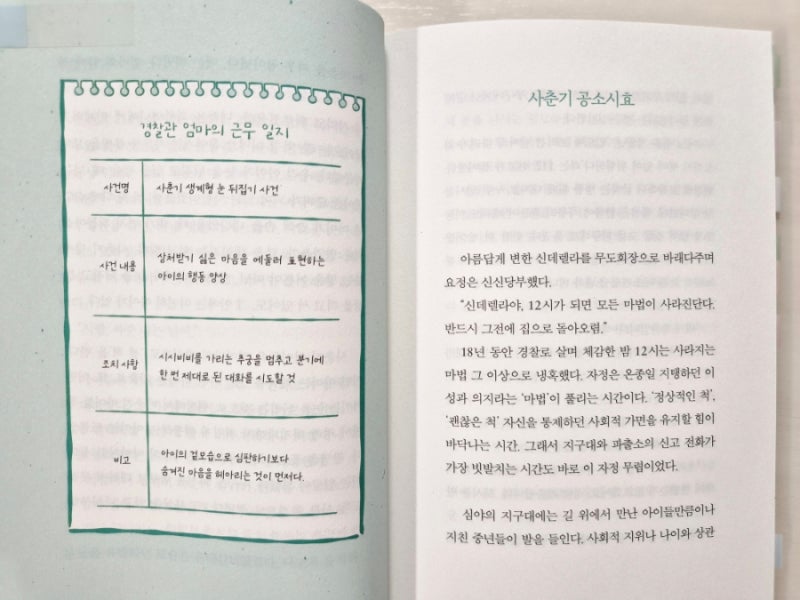 경찰관 엄마의 근무 일지
사건명
사춘기 생계형 눈 뒤집기 사건
사건 내용
상처받기 싫은 마음을 에둘러 표현하는
아이의 행동 양상
조치 사항
시시비비를 가리는 추궁을 멈추고 분기에
한 번 제대로 된 대화를 시도할 것
비고
아이의 겉모습으로 심판하기보다
숨겨진 마음을 헤아리는 것이 먼저다.
사춘기 공소시효
아름답게 변한 신데렐라를 무도회장으로 바래다주며
요정은 신신당부했다.
“신데렐라야, 12시가 되면 모든 마법이 사라진단다.
반드시 그전에 집으로 돌아오렴.”
18년 동안 경찰로 살며 체감한 밤 12시는 사라지는
마법 그 이상으로 냉혹했다. 자정은 온종일 지탱하던 이
성과 의지라는 ‘마법’이 풀리는 시간이다. ‘정상적인 척’,
‘괜찮은 척’ 자신을 통제하던 사회적 가면을 유지할 힘이
바닥나는 시간. 그래서 지구대와 파출소의 신고 전화가
가장 빗발치는 시간도 바로 이 자정 무렵이었다.
심야의 지구대에는 길 위에서 만난 아이들만큼이나
지친 중년들이 발을 들인다. 사회적 지위나 나이와 상관